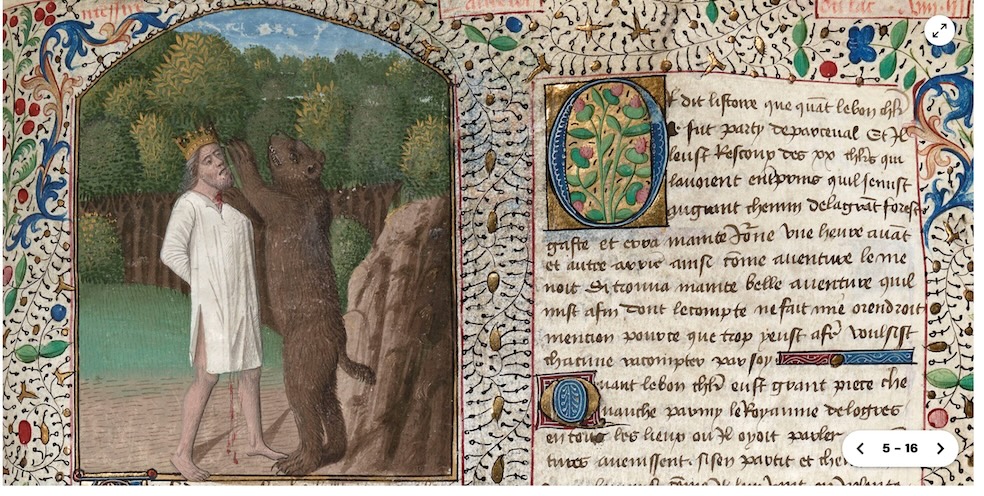 Or dit listoire que quāt le bon chl̄r
se fut party de parceval Et Il
leust Rescoux des xx chl̄rs qui
lavoient entrepris quil se mist
au grant chemin de la grāt forest
gaste et erra mainte Iōne une heure avāt
et autre arrie ainsi cōme aventure le me
noit Si trouva mainte belle aventure quil
mist afin dont le compte ne fait mie orendroit
mention pource que trop yeust afē voulsist
chacune racompter par soy
Quant le bon chl̄r eust grant piece che
vauche parmy le Royaume de logres
en tous les lieux ou Il oyoit parler
tures avenissent. si sen partit et
5 - 16